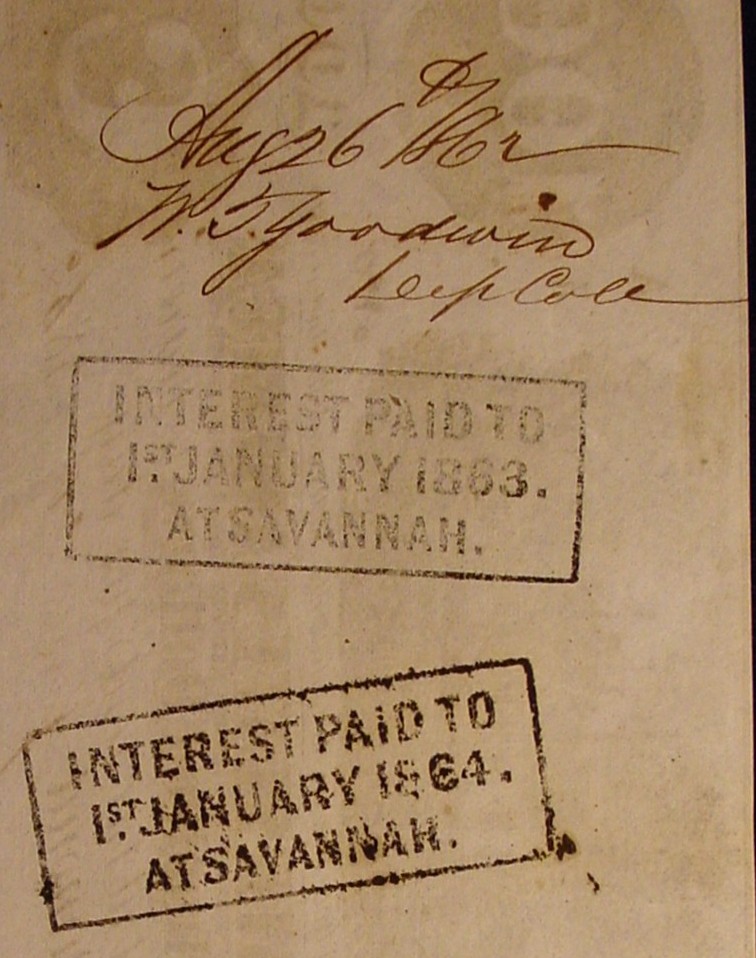 Aug 26 1862
W. T. Goodwin
Dep Coll
INTEREST PAID TO
1ST. JANUARY 1863.
AT SAVANNAH.
INTEREST PAID TO
1ST. JANUARY 1864.
AT SAVANNAH.